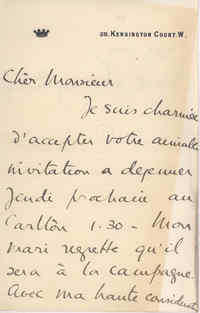 20. KENSINGTON COURT. W.
Chèr Monsieur
Je suis charmée
d'accepter votre aimable
invitation a dejeuner
Jeudi prochain au
Carlton 1.30 - Mon
mari regrette qu'il
sera à la campagne.
Avec ma haute considerat